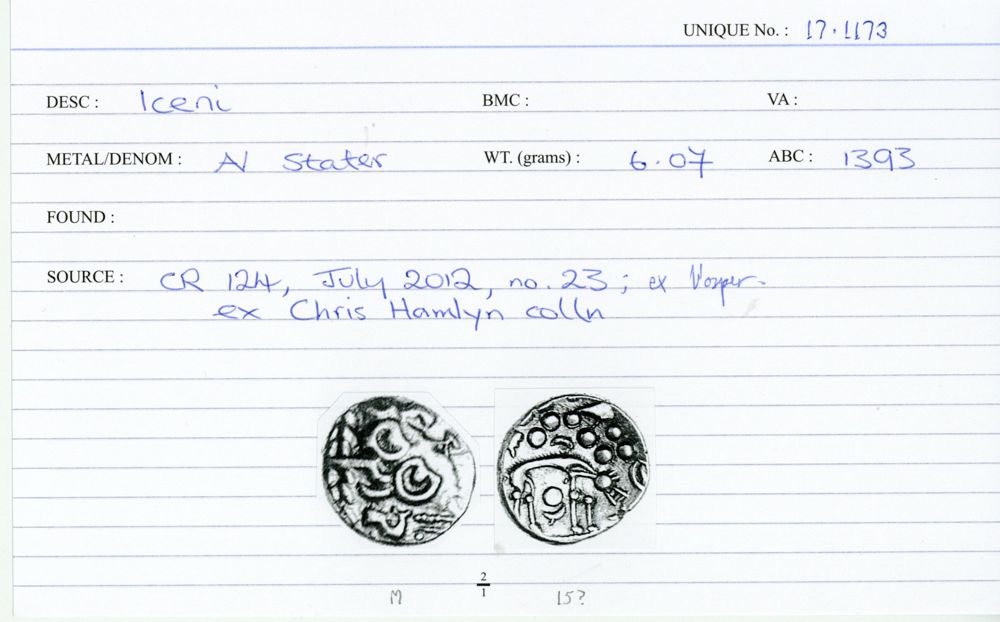 UNIQUE No. : 17.1173
DESC : Iceni BMC : VA :
METAL/DENOM : AV Stater WT. (grams) : 6.07 ABC : 1393
FOUND :
SOURCE : CR 124, July 2012, no. 23; ex Vosper.
ex Chris Hamlyn colln
2
1
M 15?